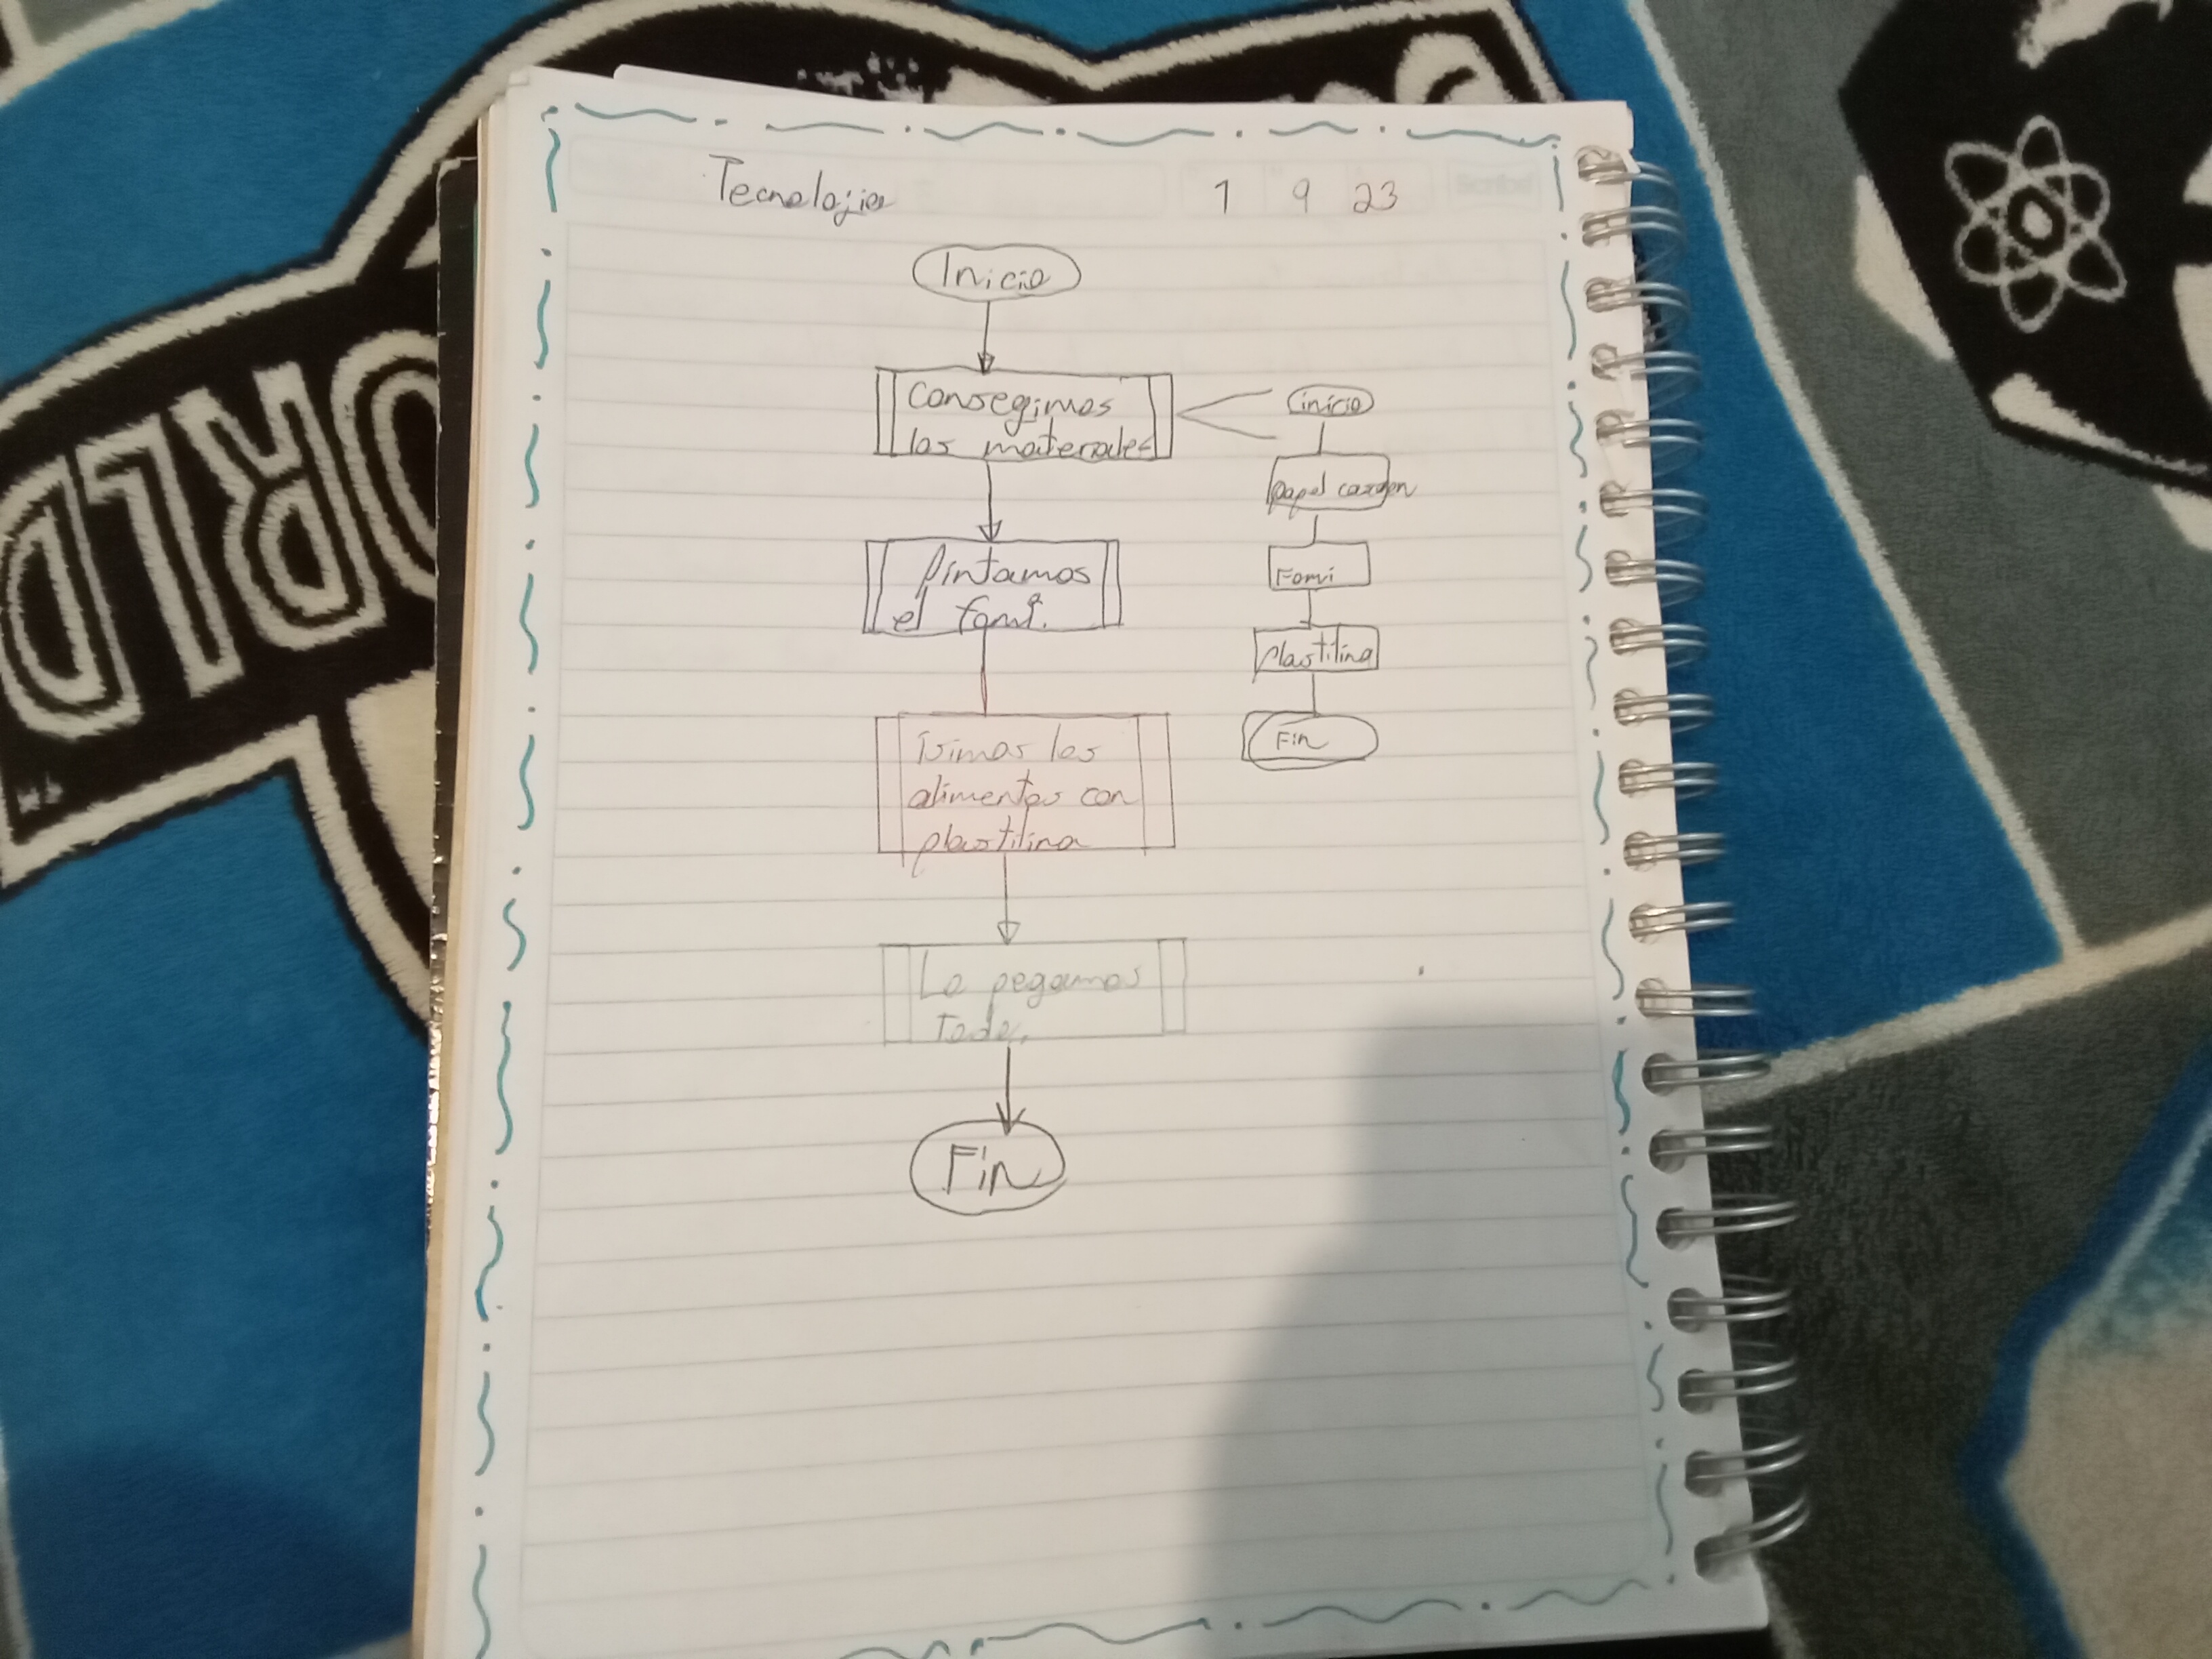 Tecnolojia
1 9 23
Inicio
Consegimos
los materales
Pintamos
el fomi.
isimos los
alimentos con
plastilina
Lo pegamos
Todo.
Fin
inicio
papel cascon
Fomi
plastilina
Fin
ORLD